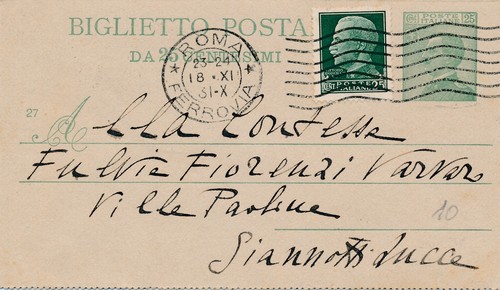 BIGLIETTO POSTA
DA 25 CENTESIMI
ROMA
23-24
18·XI
31-X
FERROVIA
POSTE
ITALIANE
CENT. 25
POSTE
25
27
Alla Contessa
Fulvia Fiorenzi Varvaro
Villa Paoline
10
Giannotti Lucca